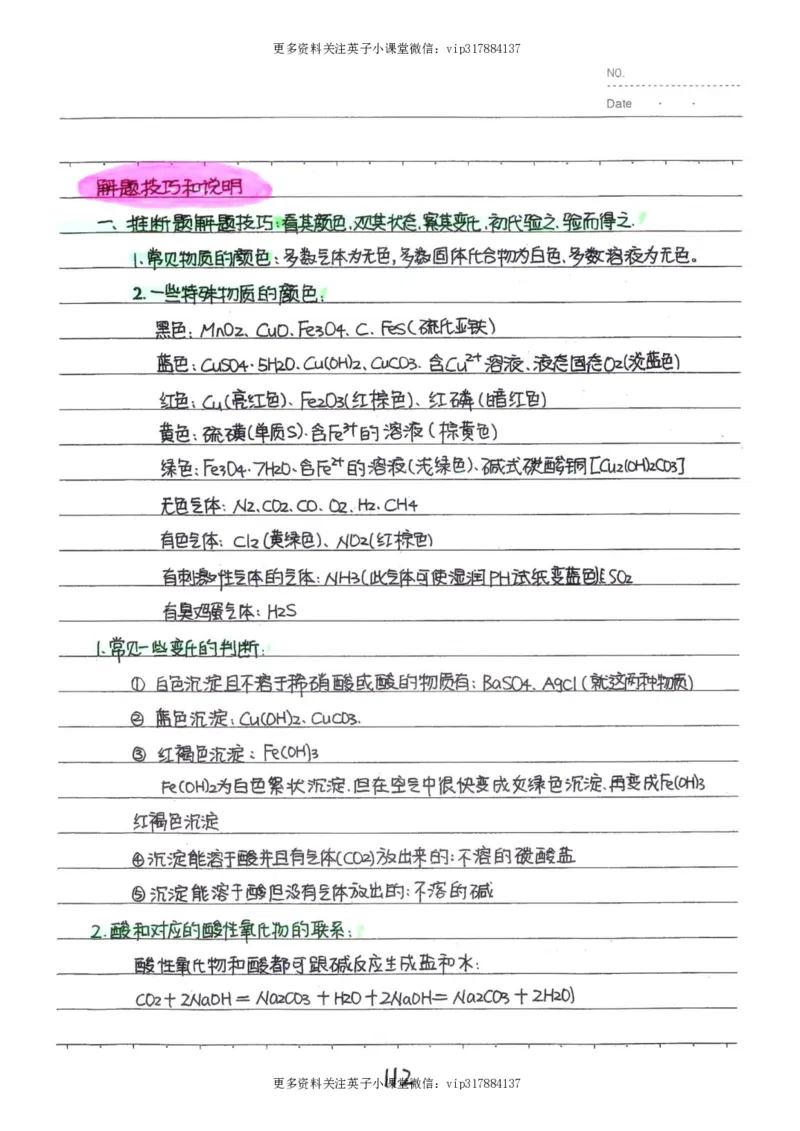 更多资料关注英子小课堂微信：vip317884137
NO.
Date
解题技巧和说明
一、推断题解题技巧:看其颜色,观其状态,察其变化,初代验之,验而得之.
1.常见物质的颜色:多数气体为无色,多数固体化合物为白色、多数溶液为无色。
2.一些特殊物质的颜色:
黑色: MnO2、CuO、Fe3O4、C、FeS(硫化亚铁)
蓝色: CuSO4·5H2O、Cu(OH)2、CuCO3、含Cu2+溶液、液态固态O2(淡蓝色)
红色: Cu(亮红色)、Fe2O3(红棕色)、红磷(暗红色)
黄色: 硫磺(单质S)、含Fe3+的溶液(棕黄色)
绿色: Fe3O4·7H2O、含Fe2+的溶液(浅绿色)、碱式碳酸铜[Cu2(OH)2CO3]
无色气体: N2、CO2、CO、O2、H2、CH4
有色气体: Cl2(黄绿色)、NO2(红棕色)
有刺激性气体的气体: NH3(此气体可使湿润PH试纸变蓝色) SO2
有臭鸡蛋气体: H2S
1.常见一些变化的判断:
① 白色沉淀且不溶于稀硝酸或酸的物质有: BaSO4、AgCl (就这两种物质)
② 蓝色沉淀: Cu(OH)2、CuCO3.
③ 红褐色沉淀: Fe(OH)3
Fe(OH)2为白色絮状沉淀,但在空气中很快变成灰绿色沉淀、再变成Fe(OH)3
红褐色沉淀
④沉淀能溶于酸并且有气体(CO2)放出来的:不溶的碳酸盐
⑤沉淀能溶于酸但没有气体放出的:不落的碱
2.酸和对应的酸性氧化物的联系:
酸性氧化物和酸都可跟碱反应生成盐和水:
CO2+2NaOH=Na2CO3+H2O+2NaOH=Na2CO3+2H2O)
112
更多资料关注英子小课堂微信：vip317884137